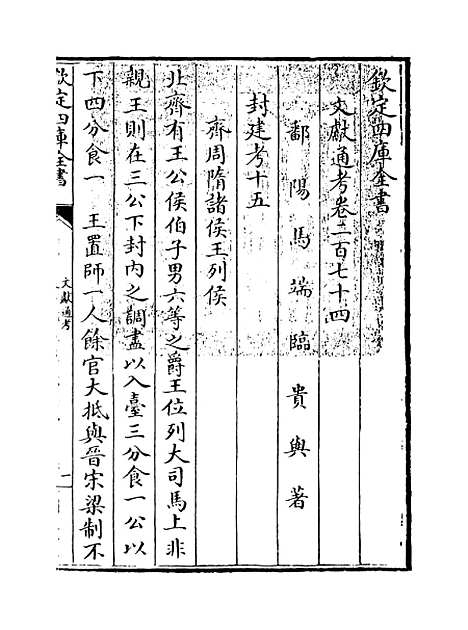 欽定四庫全書
文獻通考卷二百七十四
鄱陽馬端臨貴與著
封建考十五
齊周隋諸侯王列侯
北齊有王公侯伯子男六等之爵王位列大司馬上非
親王則在三公下封內之調盡以入臺三分食一公以
下四分食一 王置師一人餘官大抵與晉宋梁制不
欽定四庫全書
文獻通考
一